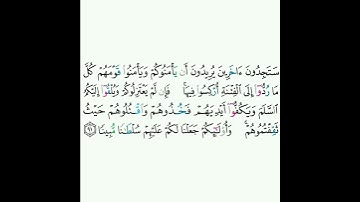 سَتَجِدُونَ ءَاخَرِينَ يُرِيدُونَ أَن يَأْمَنُوكُمْ وَيَأْمَنُوا۟ قَوْمَهُمْ كُلَّ
مَا رُدُّوٓا۟ إِلَى ٱلْفِتْنَةِ أُرْكِسُوا۟ فِيهَا ۚ فَإِن لَّمْ يَعْتَزِلُوكُمْ وَيُلْقُوٓا۟ إِلَيْكُمُ
ٱلسَّلَمَ وَيَكُفُّوٓا۟ أَيْدِيَهُمْ فَخُذُوهُمْ وَٱقْتُلُوهُمْ حَيْثُ
ثَقِفْتُمُوهُمْ ۚ وَأُو۟لَـٰٓئِكُمْ جَعَلْنَا لَكُمْ عَلَيْهِمْ سُلْطَـٰنًا مُّبِينًا ٩١